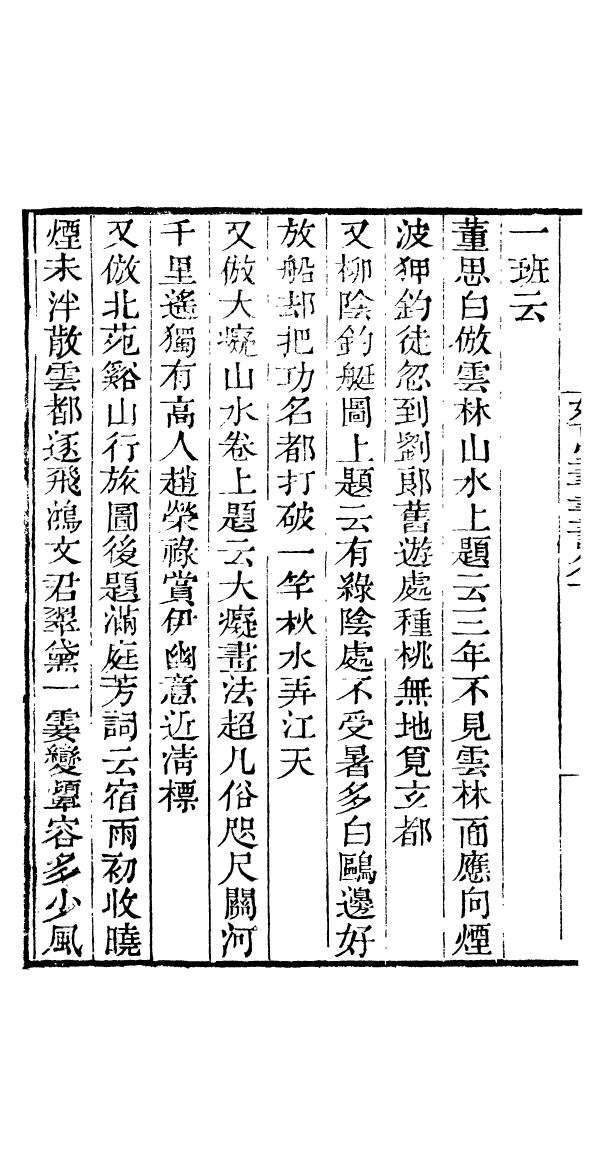 一班云
董思白倣雲林山水上題云三年不見雲林面應向煙
波狎釣徒忽到劉郎舊遊處種桃無地覓玄都
又柳陰釣艇圖上題云有綠陰處不受暑多白鷗邊好
放船却把功名都打破一竿秋水弄江天
又倣大癡山水卷上題云大癡畫法超凡俗咫尺關河
千里遙獨有高人趙榮祿賞伊幽意近清標
又倣北苑谿山行旅圖後題滿庭芳詞云宿雨初收曉
煙未泮散雲都逐飛鴻文君翠黛一霎變顰容多少風